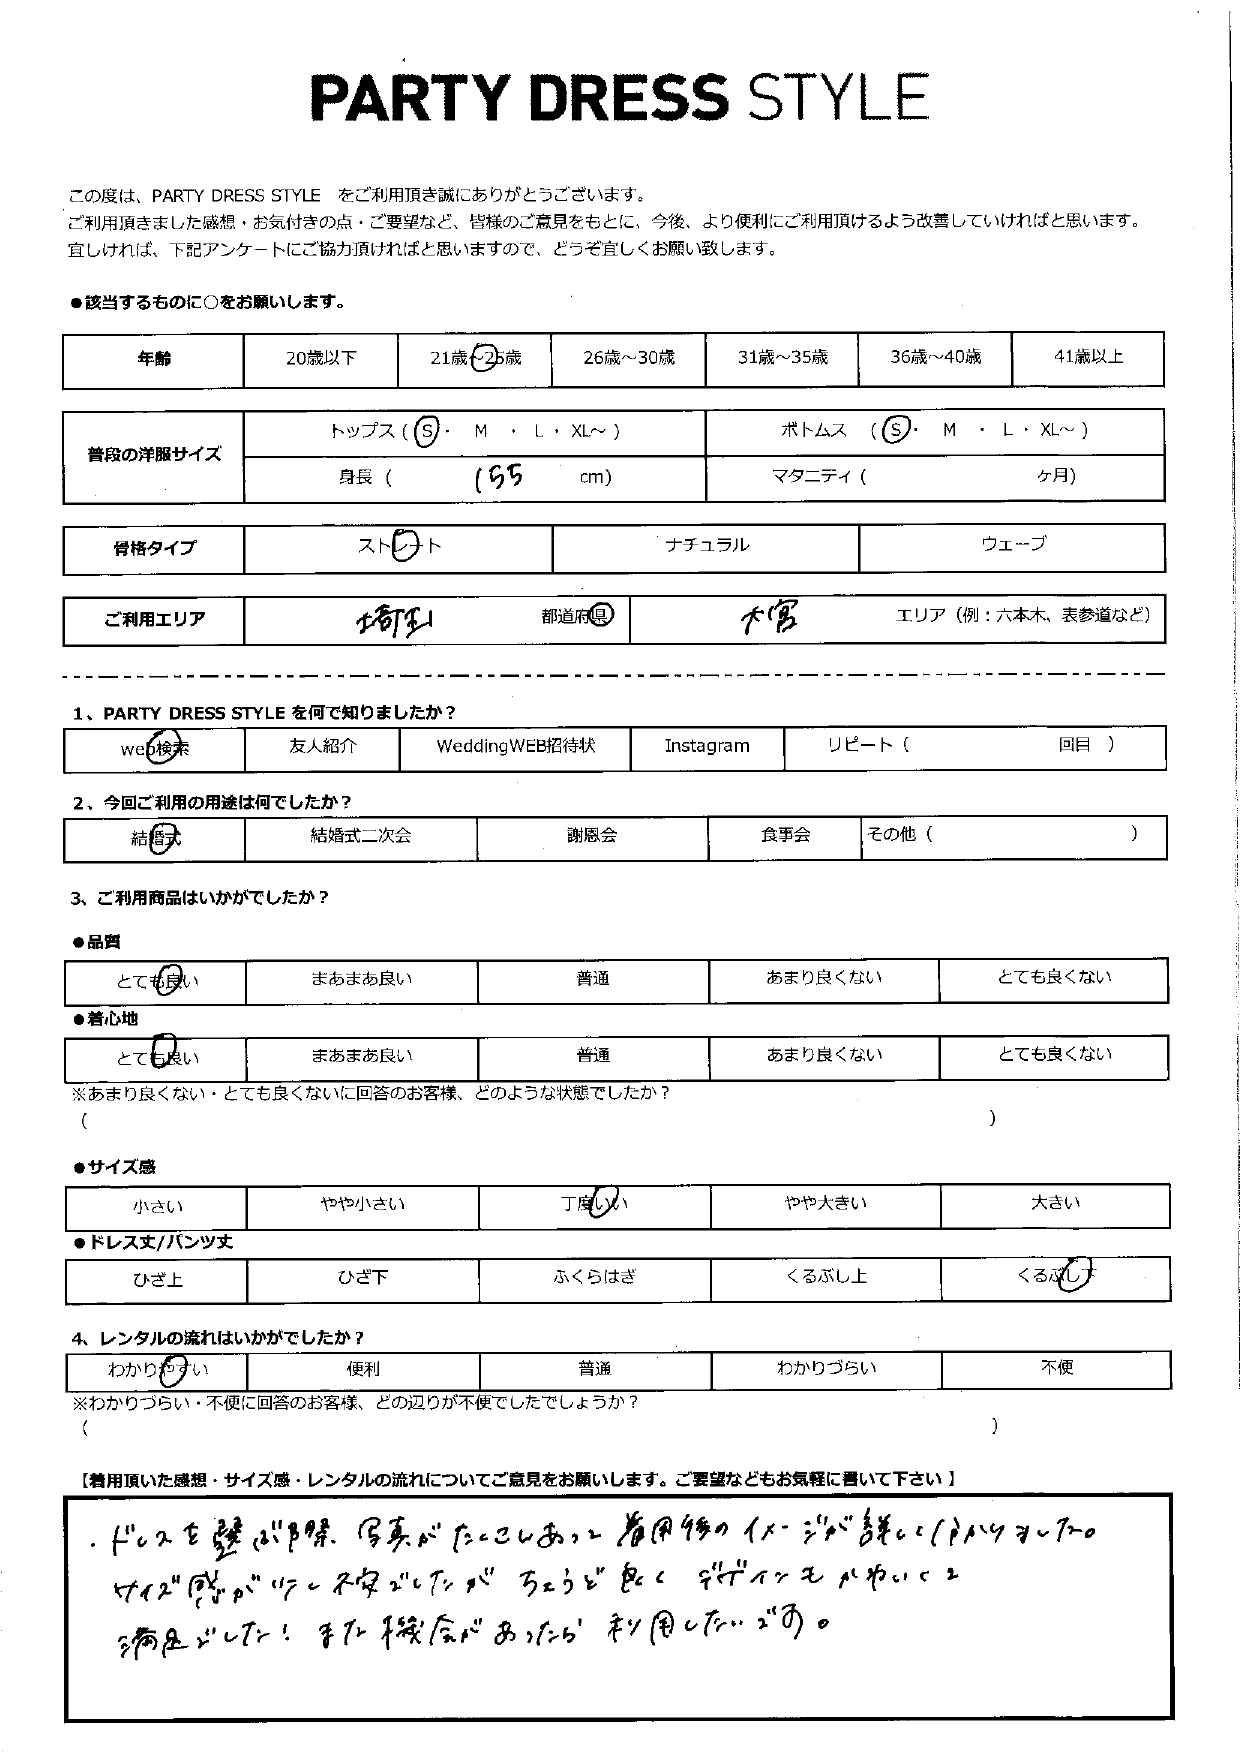 PARTY DRESS STYLE
この度は、PARTY DRESS STYLE をご利用頂き誠にありがとうございます。
ご利用頂きました感想・お気付きの点・ご要望など、皆様のご意見をもとに、今後、より便利にご利用頂けるよう改善していければと思います。
宜しければ、下記アンケートにご協力頂ければと思いますので、どうぞ宜しくお願い致します。
●該当するものに○をお願いします。
年齢 20歳以下 21歳～25歳 26歳～30歳 31歳～35歳 36歳～40歳 41歳以上
普段の洋服サイズ トップス ( S ・ M ・ L ・ XL～ ) ボトムス ( S ・ M ・ L ・ XL～ )
身長 ( 155 cm) マタニティ ( ヶ月)
骨格タイプ ストレート ナチュラル ウェーブ
ご利用エリア 埼玉 都道府県 大宮 エリア（例：六本木、表参道など）
1、PARTY DRESS STYLE を何で知りましたか？
web検索 友人紹介 WeddingWEB招待状 Instagram リピート ( 回目 )
2、今回ご利用の用途は何でしたか？
結婚式 結婚式二次会 謝恩会 食事会 その他 ( )
3、ご利用商品はいかがでしたか？
●品質
とても良い まあまあ良い 普通 あまり良くない とても良くない
●着心地
とても良い まあまあ良い 普通 あまり良くない とても良くない
※あまり良くない・とても良くないに回答のお客様、どのような状態でしたか？
( )
●サイズ感
小さい やや小さい 丁度いい やや大きい 大きい
●ドレス丈/パンツ丈
ひざ上 ひざ下 ふくらはぎ くるぶし上 くるぶし下
4、レンタルの流れはいかがでしたか？
わかりやすい 便利 普通 わかりづらい 不便
※わかりづらい・不便に回答のお客様、どの辺りが不便でしたでしょうか？
( )
【着用頂いた感想・サイズ感・レンタルの流れについてご意見をお願いします。ご要望などもお気軽に書いて下さい 】
・ドレスを選ぶ際、写真がたくさんあって着用後のイメージが詳しく分かりました。
サイズ感が少し不安でしたがちょうど良くデザインもかわいくて
満足でした！また機会があったら利用したいです。